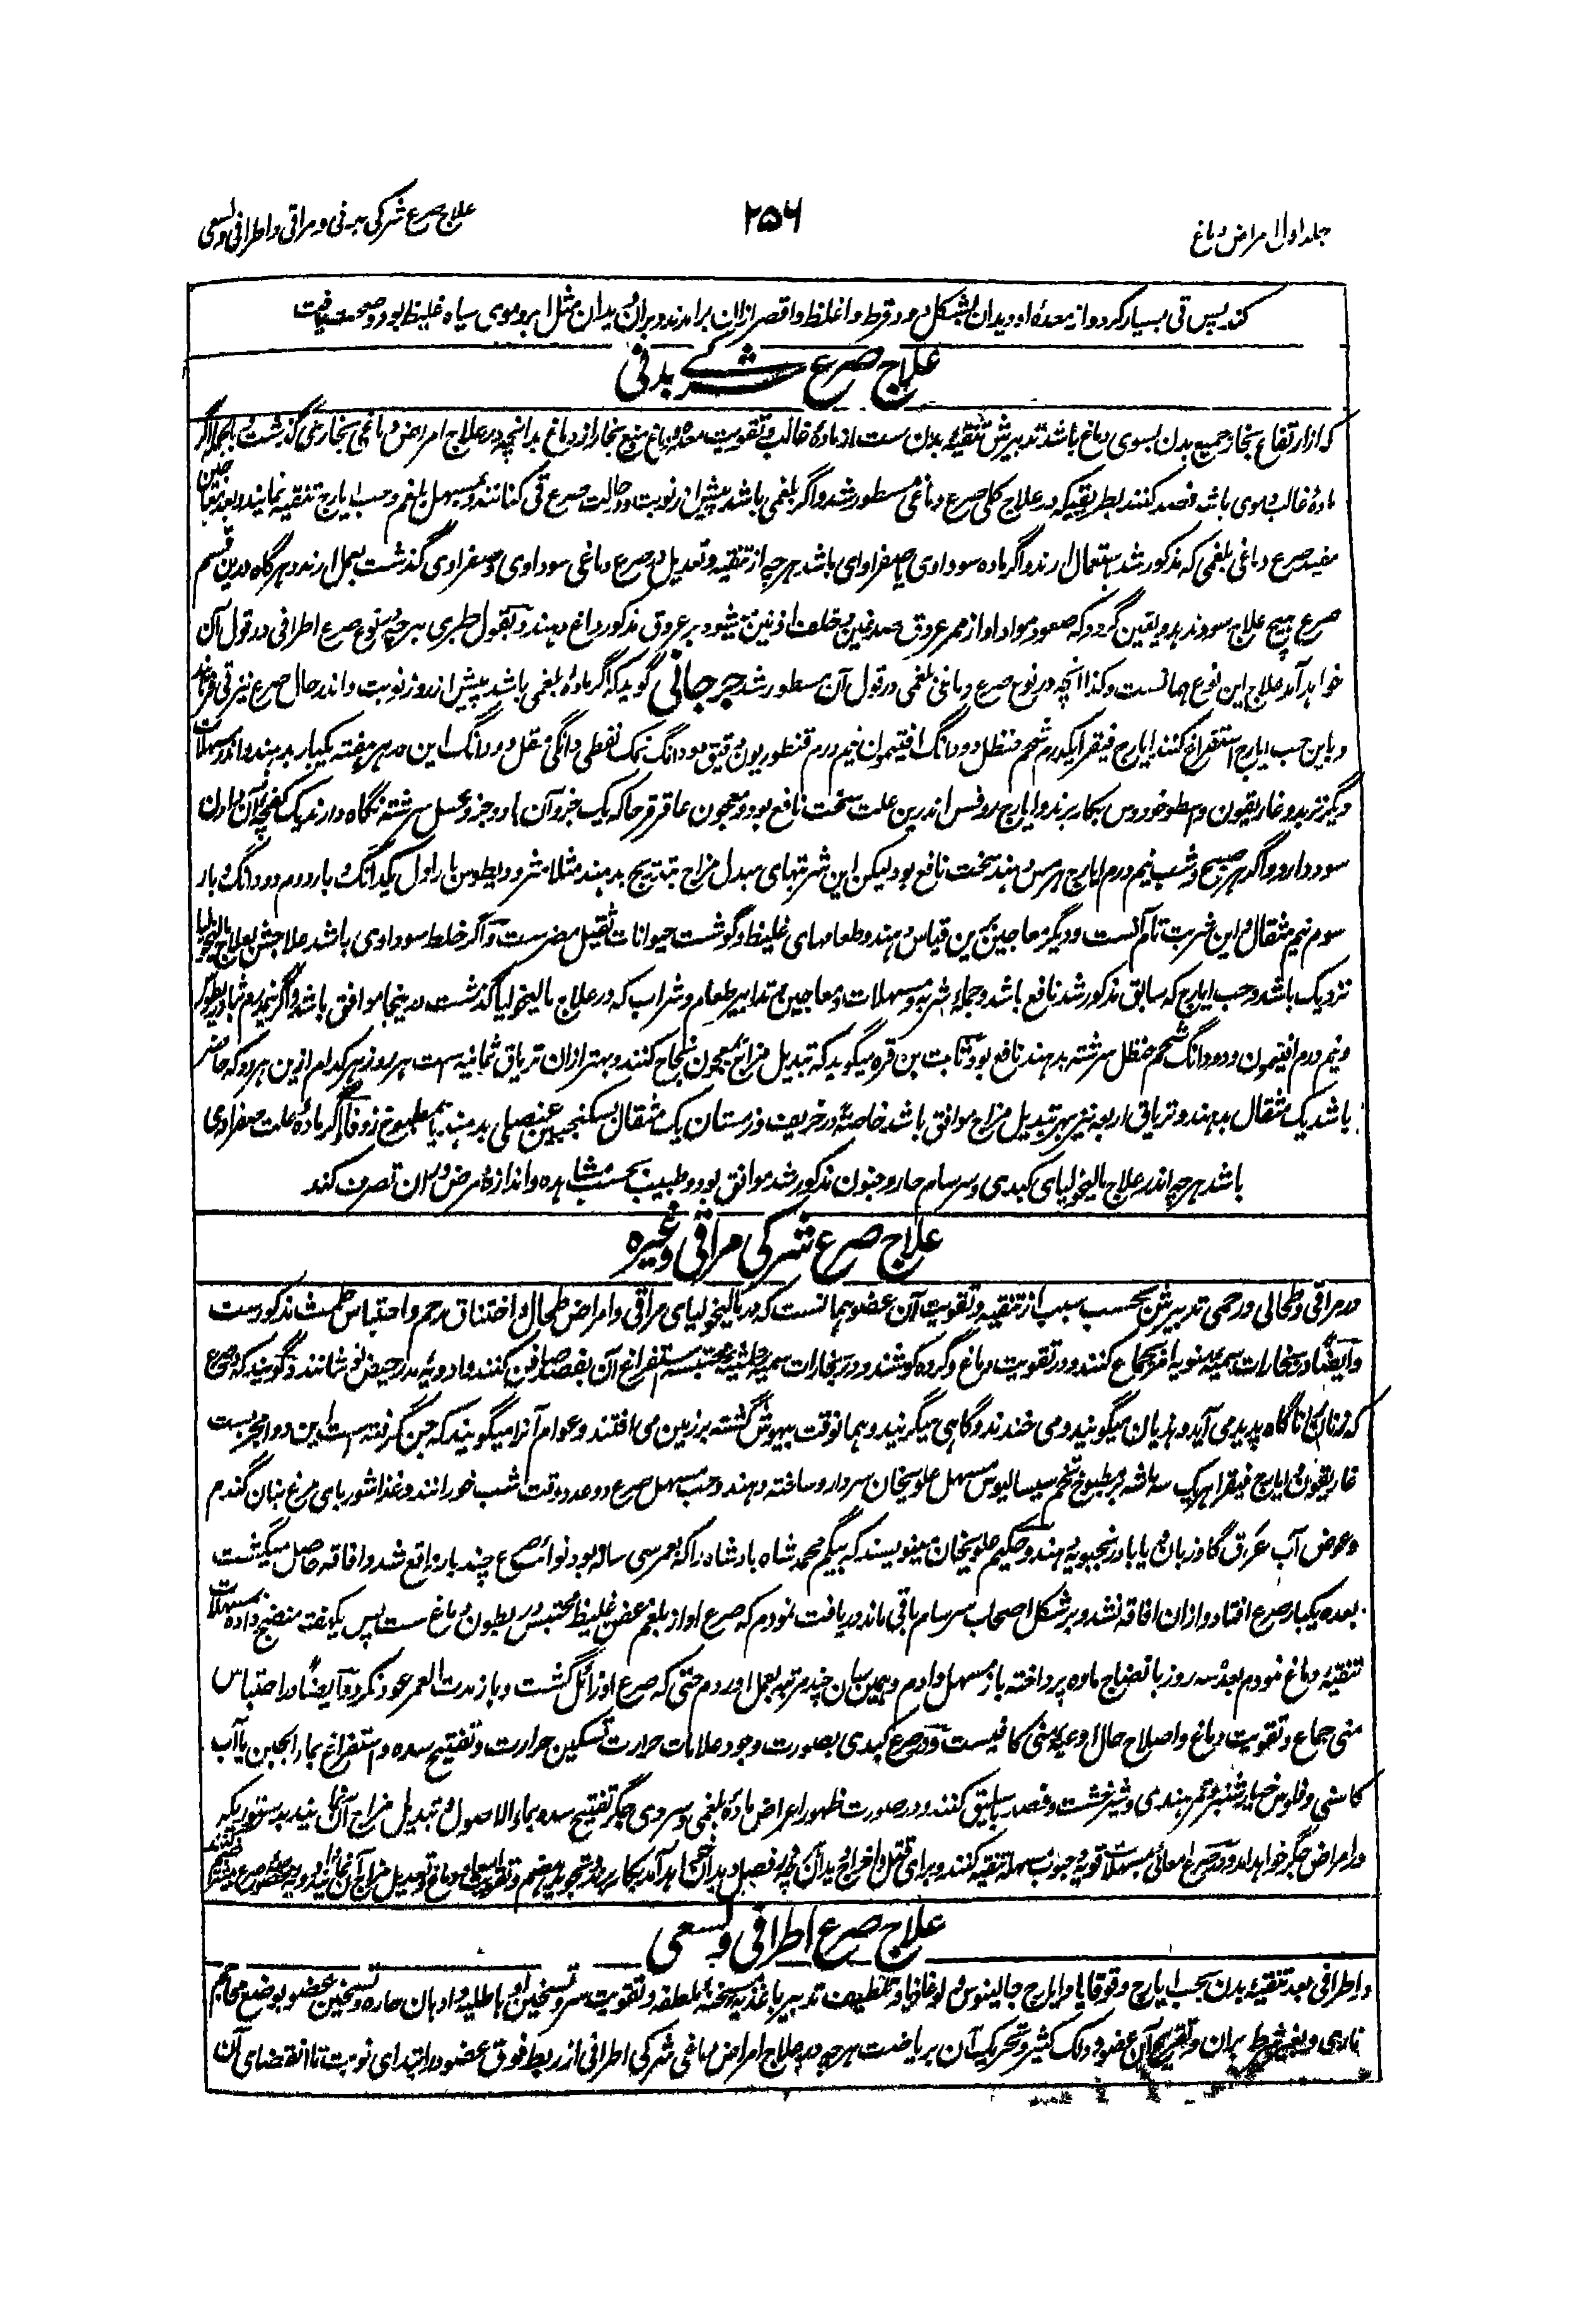 جلد اول امراض دماغ
۲۵۶
علاج صرع شرکی بدنی و مراقی و اطرافی و لسعی
کند پس قی بسیار کرد و از معدهٔ او دیدان بشکل دود قرط و اغلظ و اقصر ازان برآمدند و بران دیدان مثل ابر و موی سیاه غلیظ بود و صحت یافت
علاج صرع شرکی بدنی
که از ارتفاع بخار جمیع بدن بسوی دماغ باشد تدبیرش تنقیهٔ بدن ست از مادهٔ غالب و تقویت معده و دماغ و منع بخار از دماغ بدانچه در علاج امراض دماغی بخاری گذشت بالجمله اگر
مادهٔ غالب دموی باشد فصد کنند بطریقیکه در علاج کلی صرع دماغی مسطور شد و اگر بلغمی باشد پیش از نوبت و در حالت صرع قی کنانند و بمسهل بلغم و حب ایارج تنقیه نمایند و بعد تنقیه معاجین
مفید صرع دماغی بلغمی که مذکور شد باستعمال آرند و اگر ماده سوداوی یا صفراوی باشد هرچه از تنقیه و تعدیل در صرع دماغی سوداوی و صفراوی گذشت بعمل آرند و هرگاه درین قسم
صرع هیچ علاج سود ندهد و یقین گردد که صعود مواد او از ممر عروق صدغین و خلف اذنین میشود بر عروق مذکور داغ دهند و بقول طبری هرچه بنوع صرع اطرافی در قول آن
خواهد آمد علاج این نوع همانست و کذا آنچه در نوع صرع دماغی بلغمی در قول آن مسطور شد جرجانی گوید که اگر مادهٔ بلغمی باشد پیش از روز نوبت و اندر حال صرع نیز قی فرمایند
و باین حب ایارج استفراغ کنند ایارج فیقرا یکدرم شحم حنظل دو دانگ افتیمون نیم درم قنطوریون دقیق دو دانگ نمک نفطی دانگی مقل دو دانگ این در هر هفته یکبار بدهند و از مسهلات
دیگر تربد و غاریقون و اسطوخودوس بکار برند و ایارج روفس اندرین علت سخت نافع بود و معجون عاقرقرحا که یک جزو آن با دو جزو عسل سرشته نگاه دارند یک کفچه از آن دادن
سود دارد و اگر هر صبح و شب نیم درم ایارج هرمس دهند سخت نافع بود لیکن این شربتهای مبدل مزاج بتدریج بدهند مثلا مثرودیطوس بار اول یکدانگ بار دوم دو دانگ بار
سوم نیم مثقال و این شربت تام آنست و دیگر معاجین همین قیاس دهند و طعامهای غلیظ و گوشت حیوانات ثقیل مضرست و اگر خلط سوداوی باشد علاجش بعلاج مالیخولیا
نزدیک باشد و حب ایارج که سابق مذکور شد نافع باشد و جملهٔ اشربه و مسهلات و معاجین و تدابیر طعام و شراب که در علاج مالیخولیا گذشت درینجا موافق باشد و اگر نیم درم
و نیم درم افتیمون و دو دانگ شحم حنظل سرشته بدهند نافع بود ثابت بن قره میگوید که تبدیل مزاج بمعجون نجاح کنند و بهتر ازان تریاق ثمانیه ست هر روز هر کدام ازین هر دو که حاضر
باشد یک مثقال بدهند و تریاق اربعه نیز بهر تبدیل مزاج موافق باشد خاصةً در خریف و زمستان یک مثقال بسکنجبین عنصلی بدهند یا بمطبوخ زوفا و اگر مادهٔ علت صفراوی
باشد هرچه اندر علاج مالیخولیای کبدی و سرسام حار و جنون مذکور شد موافق بود و طبیب بحسب مشاهده و اندازهٔ مرض در آن تصرف کند
علاج صرع شرکی مراقی وغیره
در مراقی و طحالی و رحمی تدبیرش بحسب سبب از تنقیه و تقویت آن عضو همانست که در مالیخولیای مراقی و امراض طحال و اختناق رحم و احتباس طمث مذکورست
و ایضاً در بخارات سمیهٔ منویه امر بجماع کنند و در تقویت دماغ و گرده کوشند و در بخارات سمیهٔ طمثیهٔ محتبسه استفراغ آن بفصد صافن کنند و ادویهٔ مدر حیض نوشانند و گویند که در صرع
که زنان را ناگاه پدید می آید و هذیان میگویند و می خندند و گاهی میگریند و همانوقت بیهوش گشته بر زمین می افتند و عوام آنرا میگویند که جن گرفته ست این دوا مجربست
غاریقون و ایارج فیقرا هریک سه ماشه در مطبوخ تخم سیسالیوس مسهل علویخان سردار و ساخته دهند و حب مسهل صرع دو عدد وقت شب خورانند و غذا شوربای مرغ بنان گندم
و عوض آب عرق گاوزبان و یا بادرنجبویه دهند و حکیم علویخان مینویسند که بیگم محمد شاه بادشاه را که بعمر سی ساله بود نوائب صرع چند بار واقع شد و افاقه حاصل میگشت
بعده یکبار صرع افتاد و ازان افاقه نشد و بر شکل اصحاب سرسام باقی ماند دریافت نمودم که صرع او از بلغم عفن غلیظ محتبس در بطون دماغ ست پس یکهفته منضج داده بمسهلات
تنقیهٔ دماغ نمودم بعدهٔ سه روز بانضاج ماده پرداخته باز مسهل دادم و بهمین سان چند مرتبه بعمل آوردم حتی که صرع او زائل گشت و باز مدت العمر عود نکرد و ایضاً در احتباس
منی جماع و تقویت دماغ و اصلاح حال اوعیهٔ منی کافیست و در صرع کبدی بصورت وجود علامات حرارت تسکین حرارت و تفتیح سده و استفراغ بماء الجبن یا آب
کاسنی و فلوس خیارشنبر و تمر هندی و شیرخشت و فصد باسلیق کنند و در صورت ظهور اعراض مادهٔ بلغمی و سردی جگر تفتیح سده بماء الاصول و تبدیل مزاج آن نمایند بدستوریکه
در امراض جگر خواهد آمد و در صرع امعائی بمسهلات قویه و حبوب مسهله تنقیه کنند و برای قتل و اخراج دیدان آنچه بفصل دیدان خواهد آمد بکار برند
علاج صرع اطرافی و لسعی
در اطرافی بعد تنقیهٔ بدن بحب ایارج و قوقایا و ایارج جالینوس و لوغاذیا و تلطیف تدبیر باغذیهٔ مسخنهٔ ملطفه و تقویت سر و تسخین او باطلیه و ادهان حاره و تسخین عضو بوضع محاجم
ناری و بغیر شرط بران و تقریح آن عضو و دلک کثیر و تحریک آن بریاضت هرچه در علاج امراض دماغی شرکی اطرافی از ربط فوق عضو در ابتدای نوبت تا انقضای آن